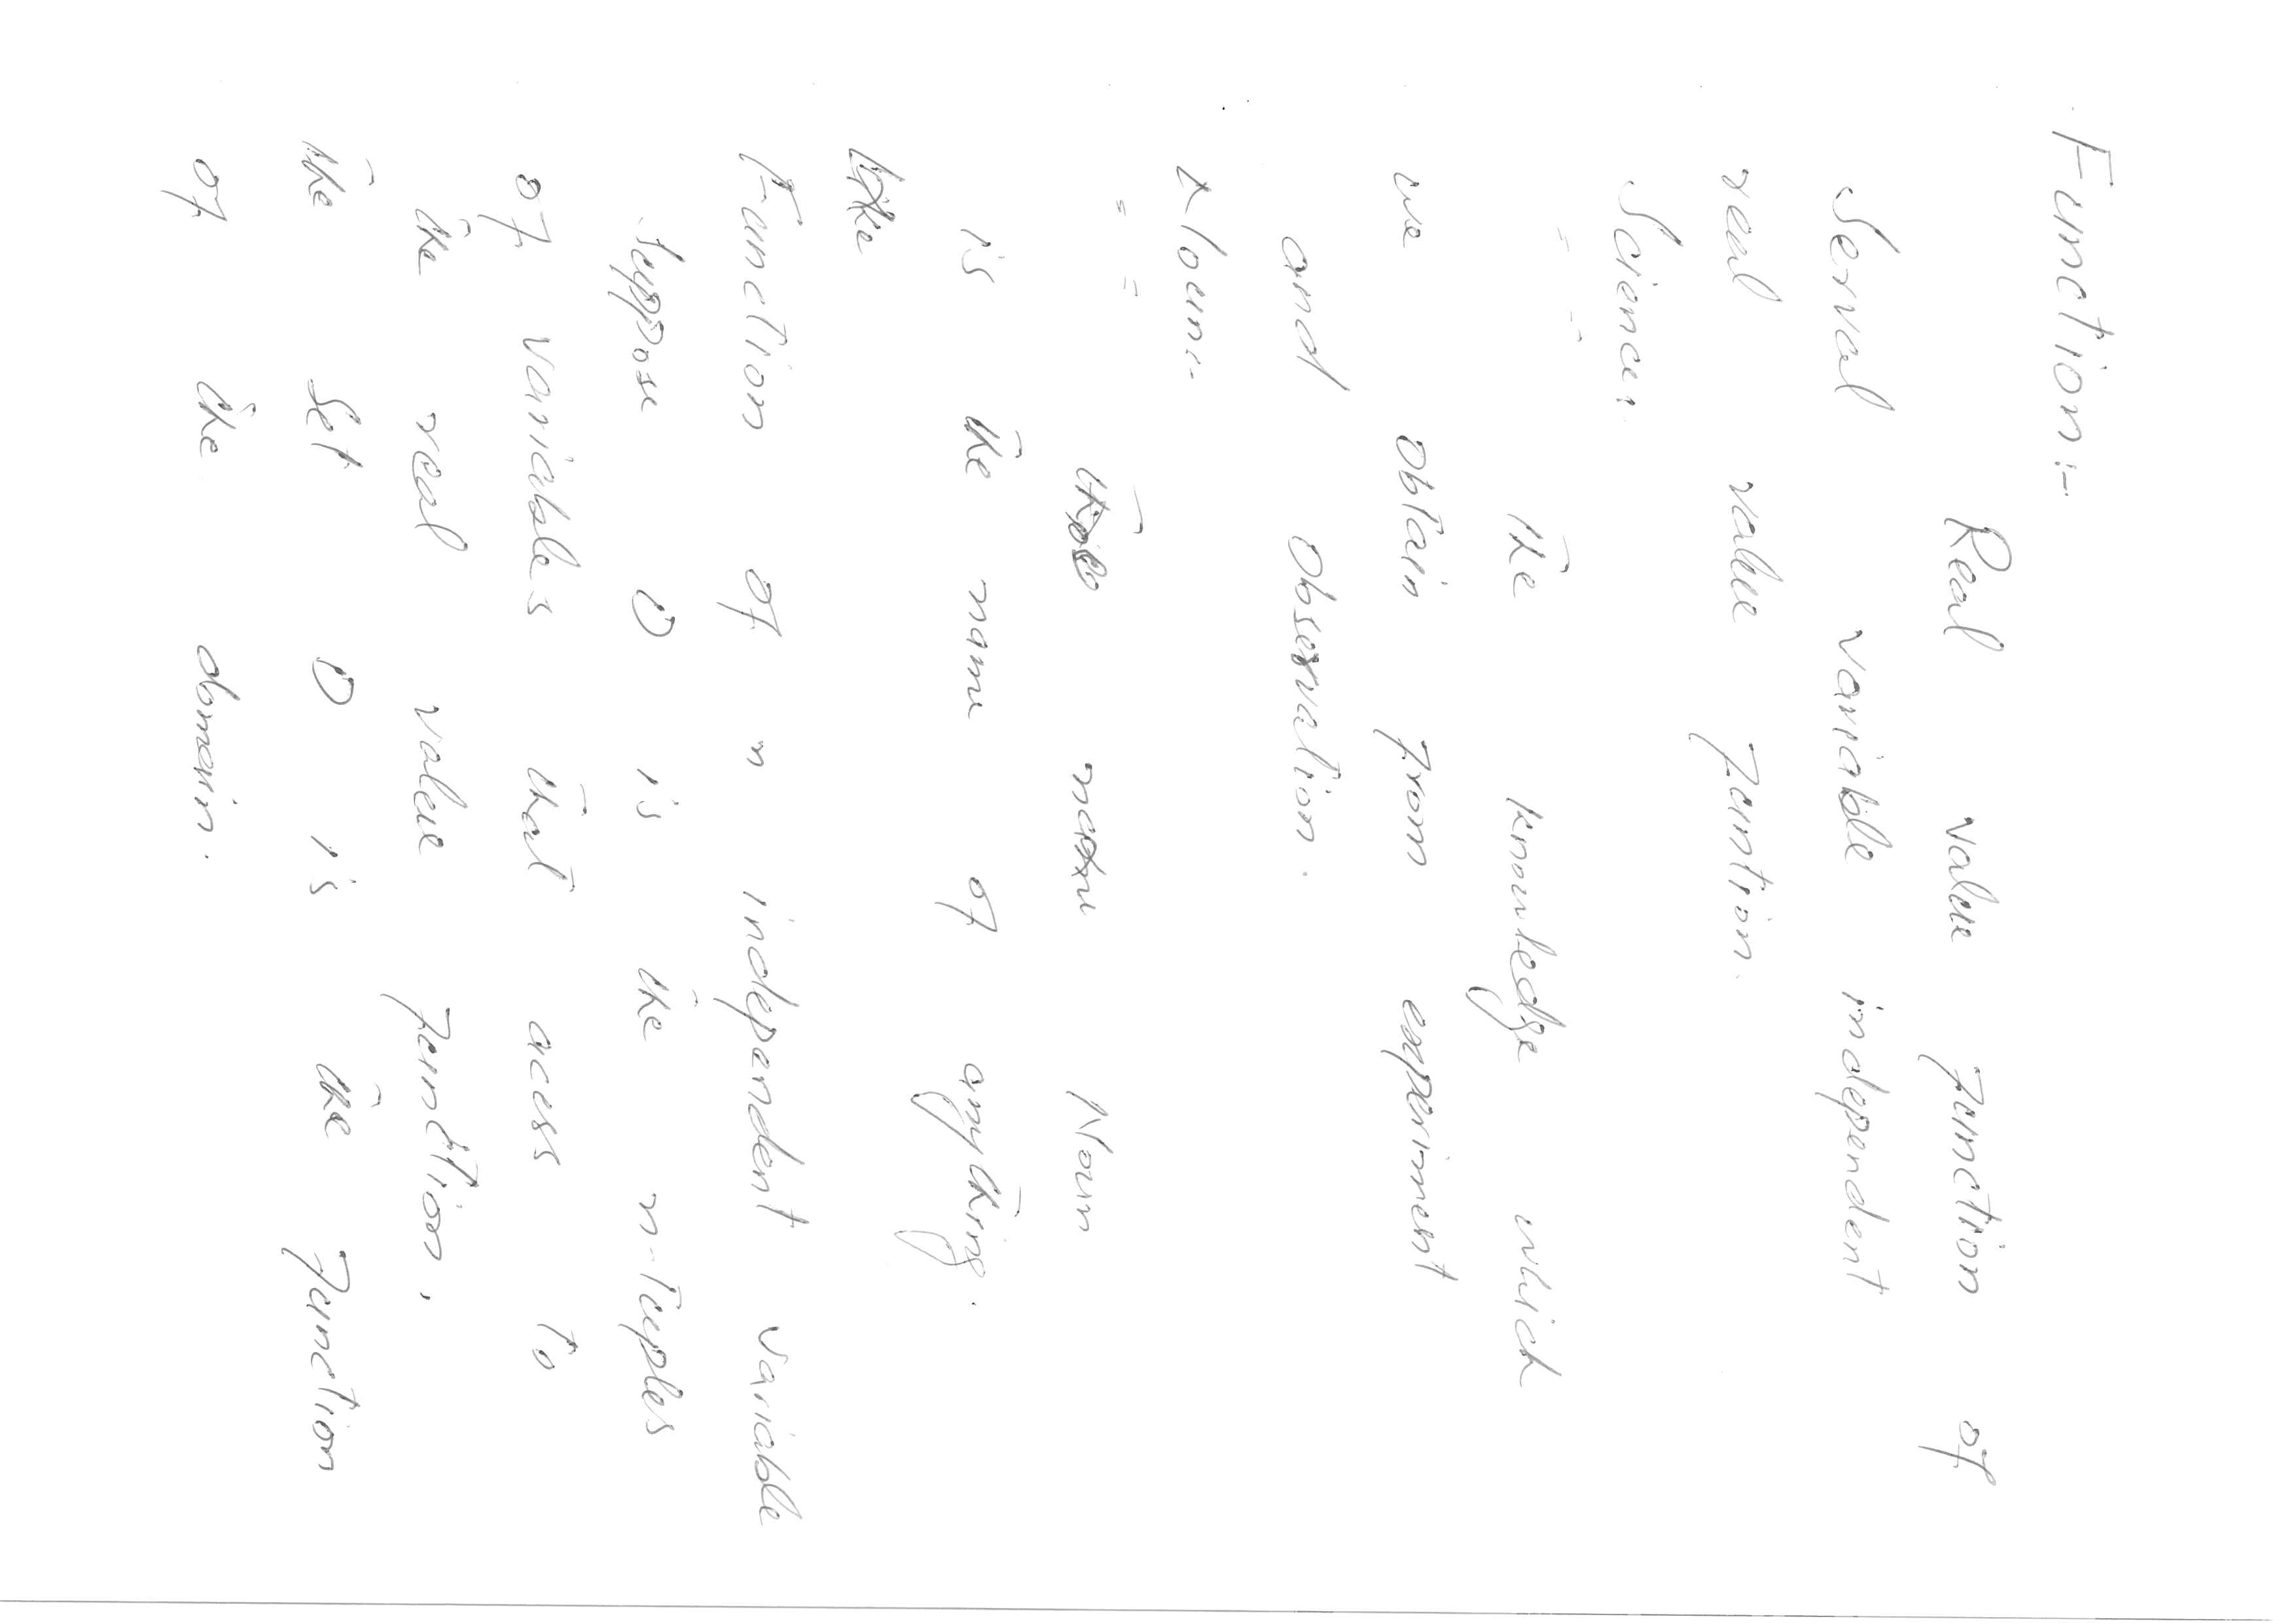 Function:-
Real value function of
Serval variable independent
real value funtion.
Science:
The knowledge which
we obtain from experiment
and Observation.
Noun:-
name Noun
is the name of anything.
Like
Function of n independent variable
Suppose D is the n-tuples
of variables that acess to
the real value function.
The Set D is the function
of the domain.